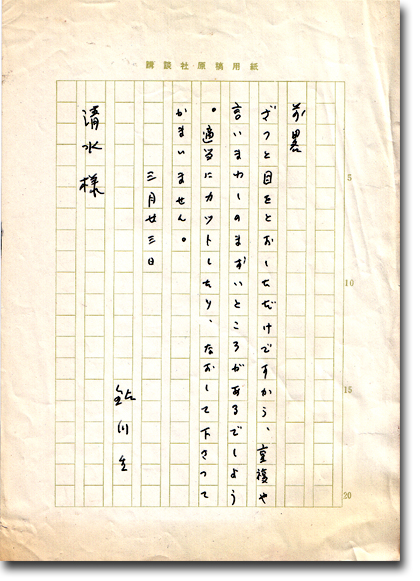 講談社原稿用紙
前略
ざっと目をとおしただけですから、重複や
言いまわしのまずいところがあるでしょう
。適当にカットしたり、なおして下さって
かまいません。
三月廿三日
鮎川生
清水様
5
10
15
20